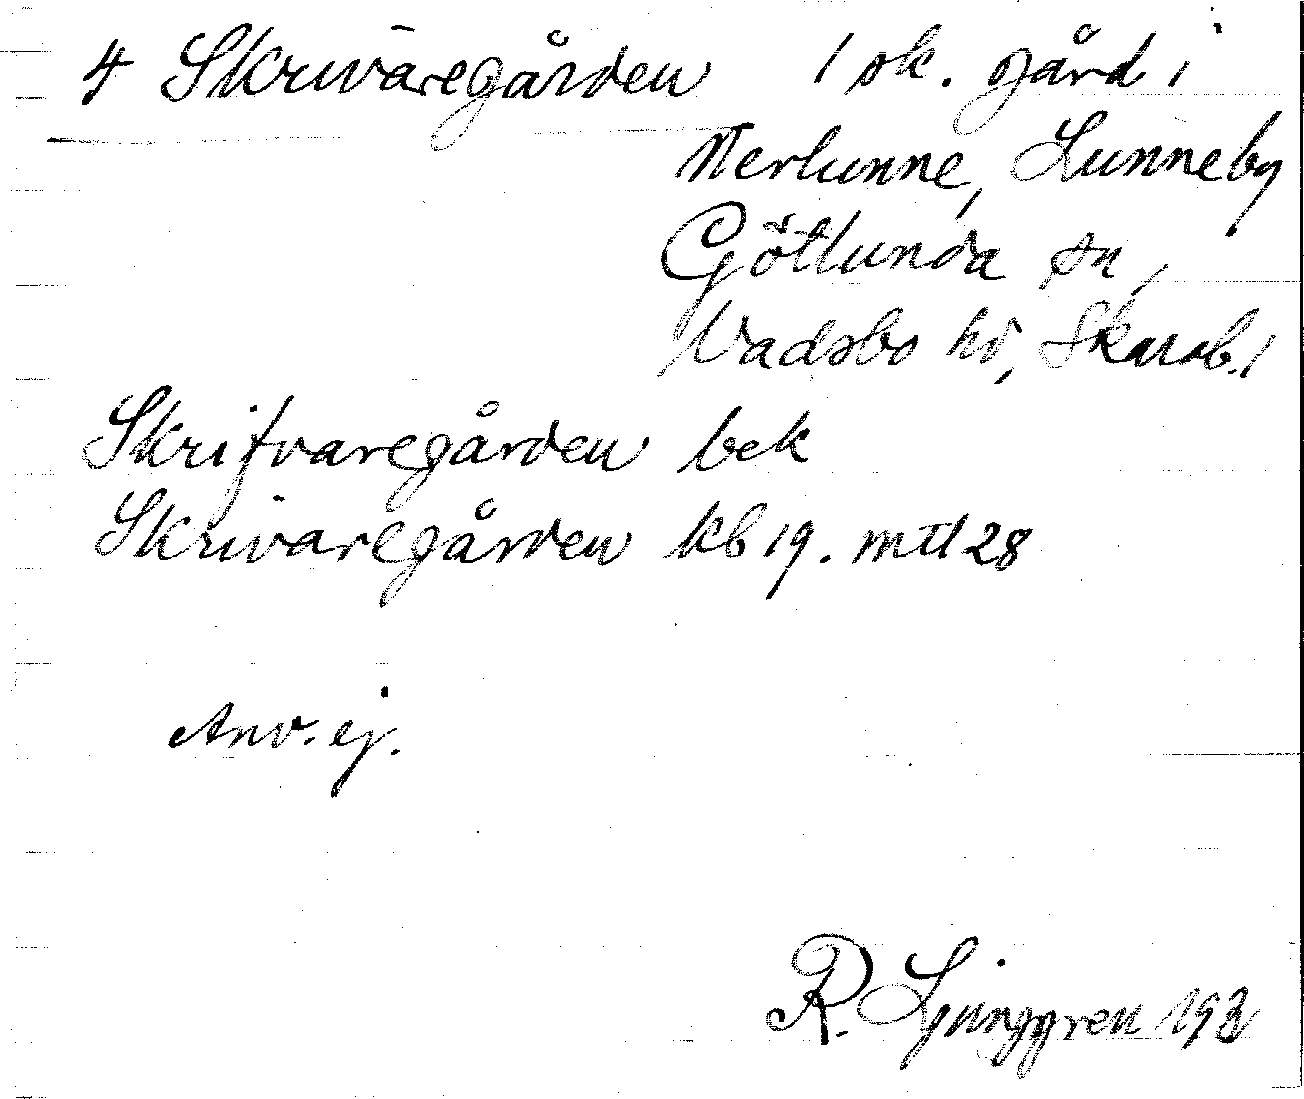 4 Skrivaregården 1 sk. gård i
Nerlunne, Lunneby
Götlunda sn,
Vadsbo hd, Skarab.l
Skrifvaregården bek
Skrivaregården kb 19. mtl 28
Anv. ej.
R. Ljunggren